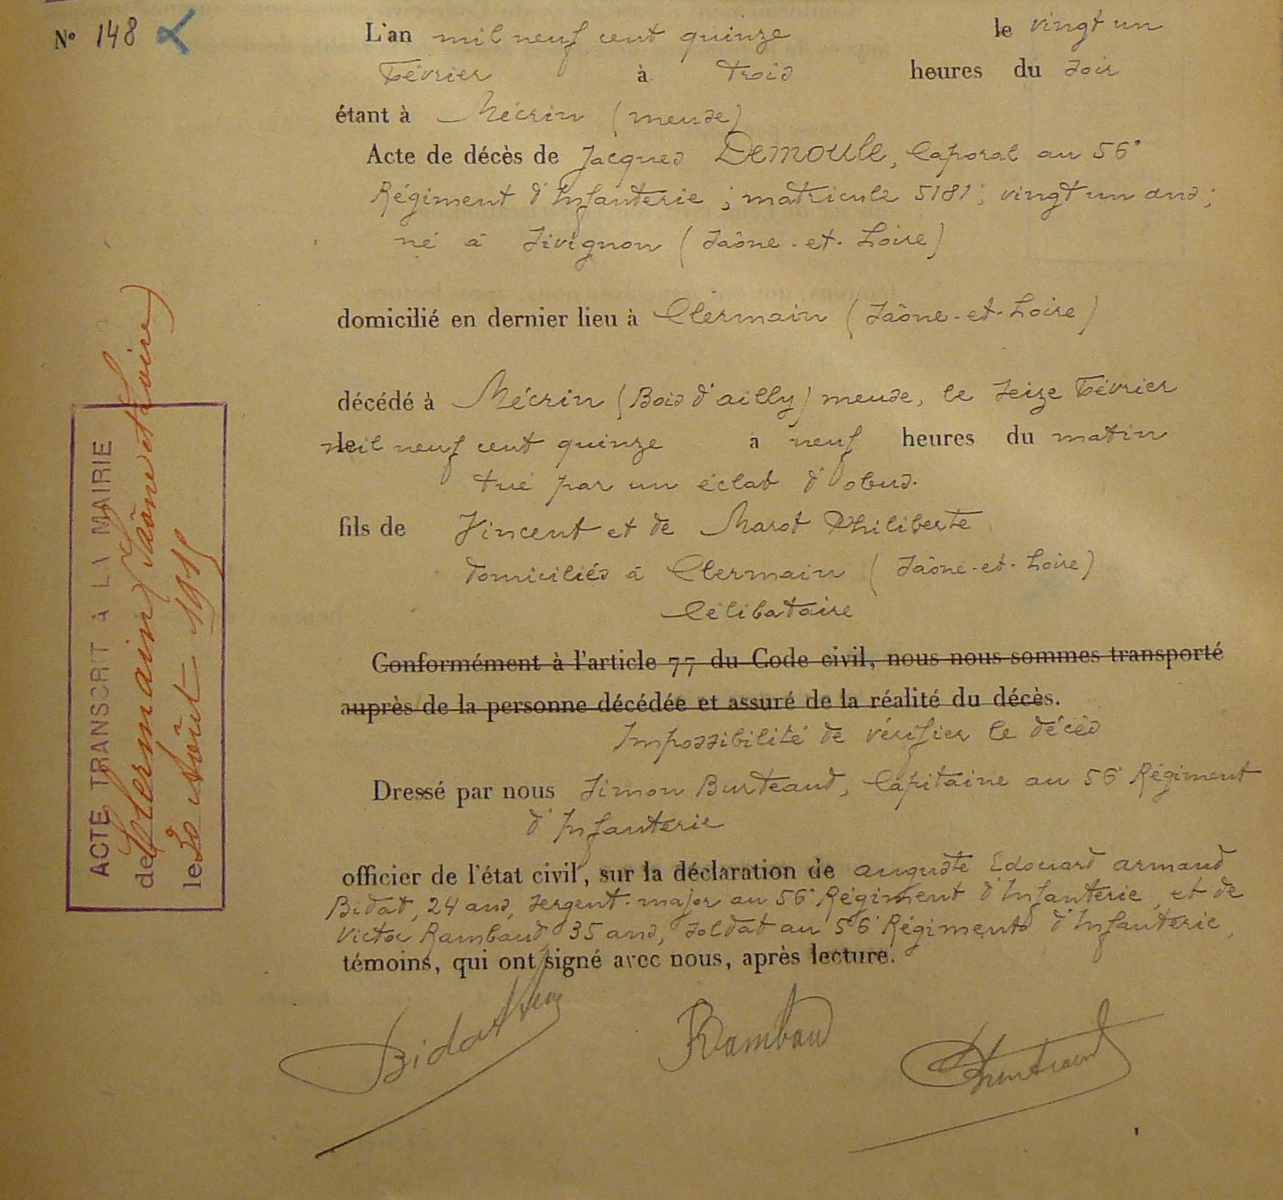 N° 148
L'an mil neuf cent quinze le vingt un
Février à trois heures du soir
étant à Mécrin (meuse)
Acte de décès de Jacques Demoule, Caporal au 56e
Régiment d'Infanterie ; matricule 5181 ; vingt un ans ;
né à Sivignon (Saône-et-Loire)
domicilié en dernier lieu à Clermain (Saône-et-Loire)
décédé à Mécrin (Bois d'ailly) meuse, le seize Février
mil neuf cent quinze à neuf heures du matin
tué par un éclat d'obus.
fils de Vincent et de Marot Philiberte
domiciliés à Clermain (Saône-et-Loire)
Célibataire
Conformément à l'article 77 du Code civil, nous nous sommes transporté
auprès de la personne décédée et assuré de la réalité du décès.
Impossibilité de vérifier le décès
Dressé par nous Simon Burteaud, Capitaine au 56e Régiment
d'Infanterie
officier de l'état civil, sur la déclaration de auguste Edouard armand
Bidat, 24 ans, sergent-major au 56e Régiment d'Infanterie, et de
Victor Rambaud 35 ans, soldat au 56e Régiments d'Infanterie,
témoins, qui ont signé avec nous, après lecture.
Bidat Rambaud
ACTE TRANSCRIT à LA MAIRIE
de Clermain (Saône et Loire)
le 30 Août 1915